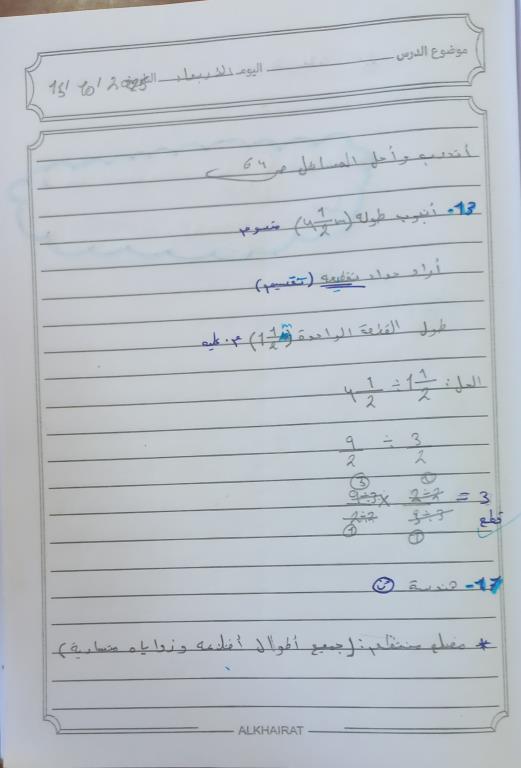 موضوع الدرس اليوم الاربعاء التاريخ 15/ 10/ 2025
أتدرب وأحل المسائل ص 64
13- أنبوب طوله (4 1/2 m) مقسوم
أراد حداد تقطيعه (تقسيم)
طول القطعة الواحدة (1 1/2 m) م. عليه
الحل: 4 1/2 ÷ 1 1/2
9/2 ÷ 3/2
③ ①
9÷3/2÷2 × 2÷2/3÷3 = 3
① ① قطع
17- هندسة
* مضلع منتظم: (جميع أطوال أضلاعه وزواياه متساوية)
ALKHAIRAT